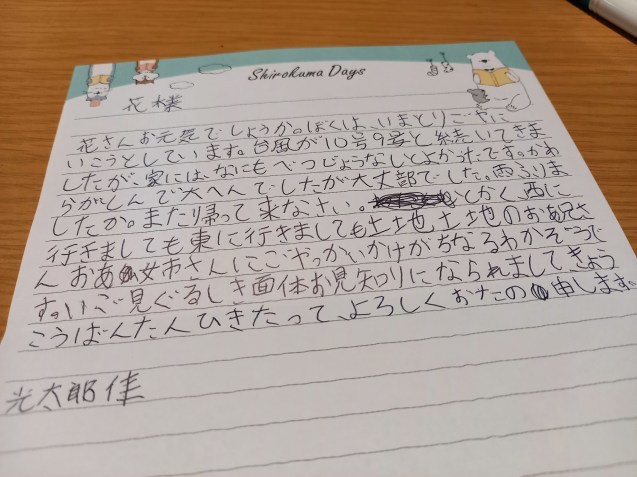 Shirokuma Days
花様
花さんお元気でしょうか。ぼくは、いまとりごやに
いこうとしています。台風が10号9号と続いてきま
したが、家には、なにもべつじょうなしとよかったです。かわ
らがしんで大へんでしたが大丈部でした。雨ふりま
したか。またり帰って来なさい。とかく西に
行きましても東に行きましても土地土地のお兄さ
んおあ女市さんにごやっかいかけがちなるわかぞうで
す。いご見ぐるしき面体お見知りになられましてきょう
こうばんたんひきたって、よろしくおたの申します。
光太郎佳